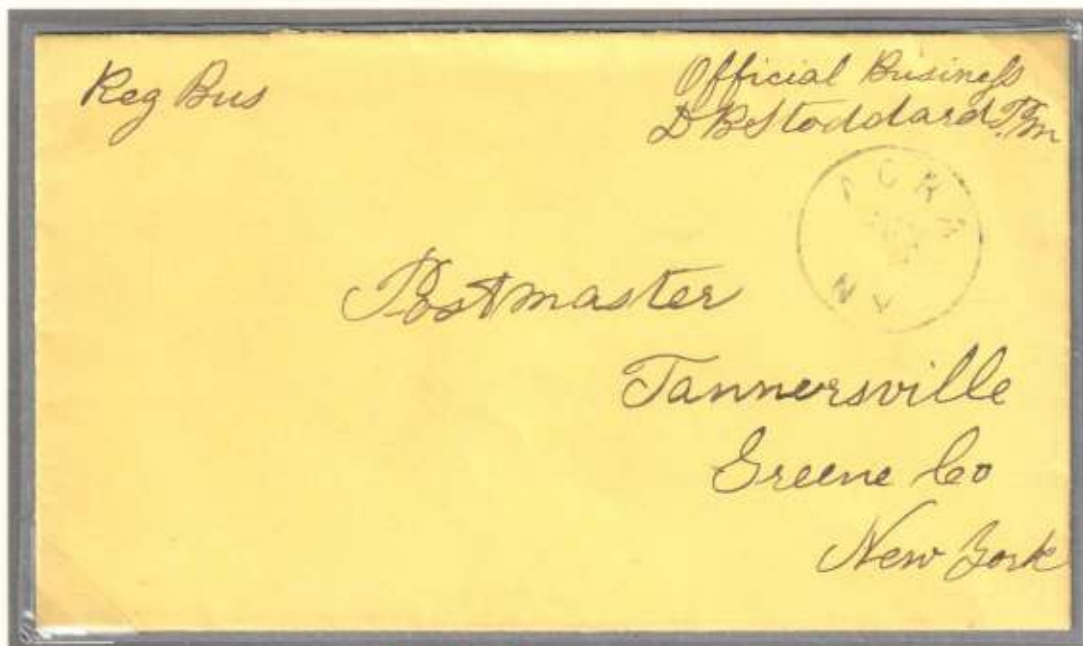 Reg Bus
Official Business
D B Stoddard P.M
ACRA
N Y
Postmaster
Tannersville
Greene Co
New York